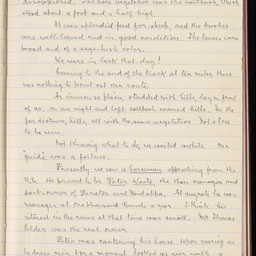 disappeared. The sole vegetation was the saltbush, which
stood about a foot and a half high.
It was splendid feed for stock, and the bushes
was well leaved and in good condition. The leaves were
broad and of a sage-bush color.
We were in luck that day!
Coming to the end of the track at ten miles there
was nothing to point out our route.
An immense plain, studded with hills lay in front
of us. On our right and left, saltbush covered hills. In the
far distance, hills, all with the same vegetation. Not a tree
to be seen.
Not knowing what to do, we waited awhile. Our
guide was a failure.
Presently we saw a horseman approaching from the
N.E. He proved to be Peter Waite, the then manager and
part-owner of Paratoo and
manager at one thousand pounds a year. I think his
interest in the runs at that time was small. Mr Thomas
Elder was the real owner.
Peter was cantering his horse. Upon seeing us
he drew rein for a moment, looked us over well